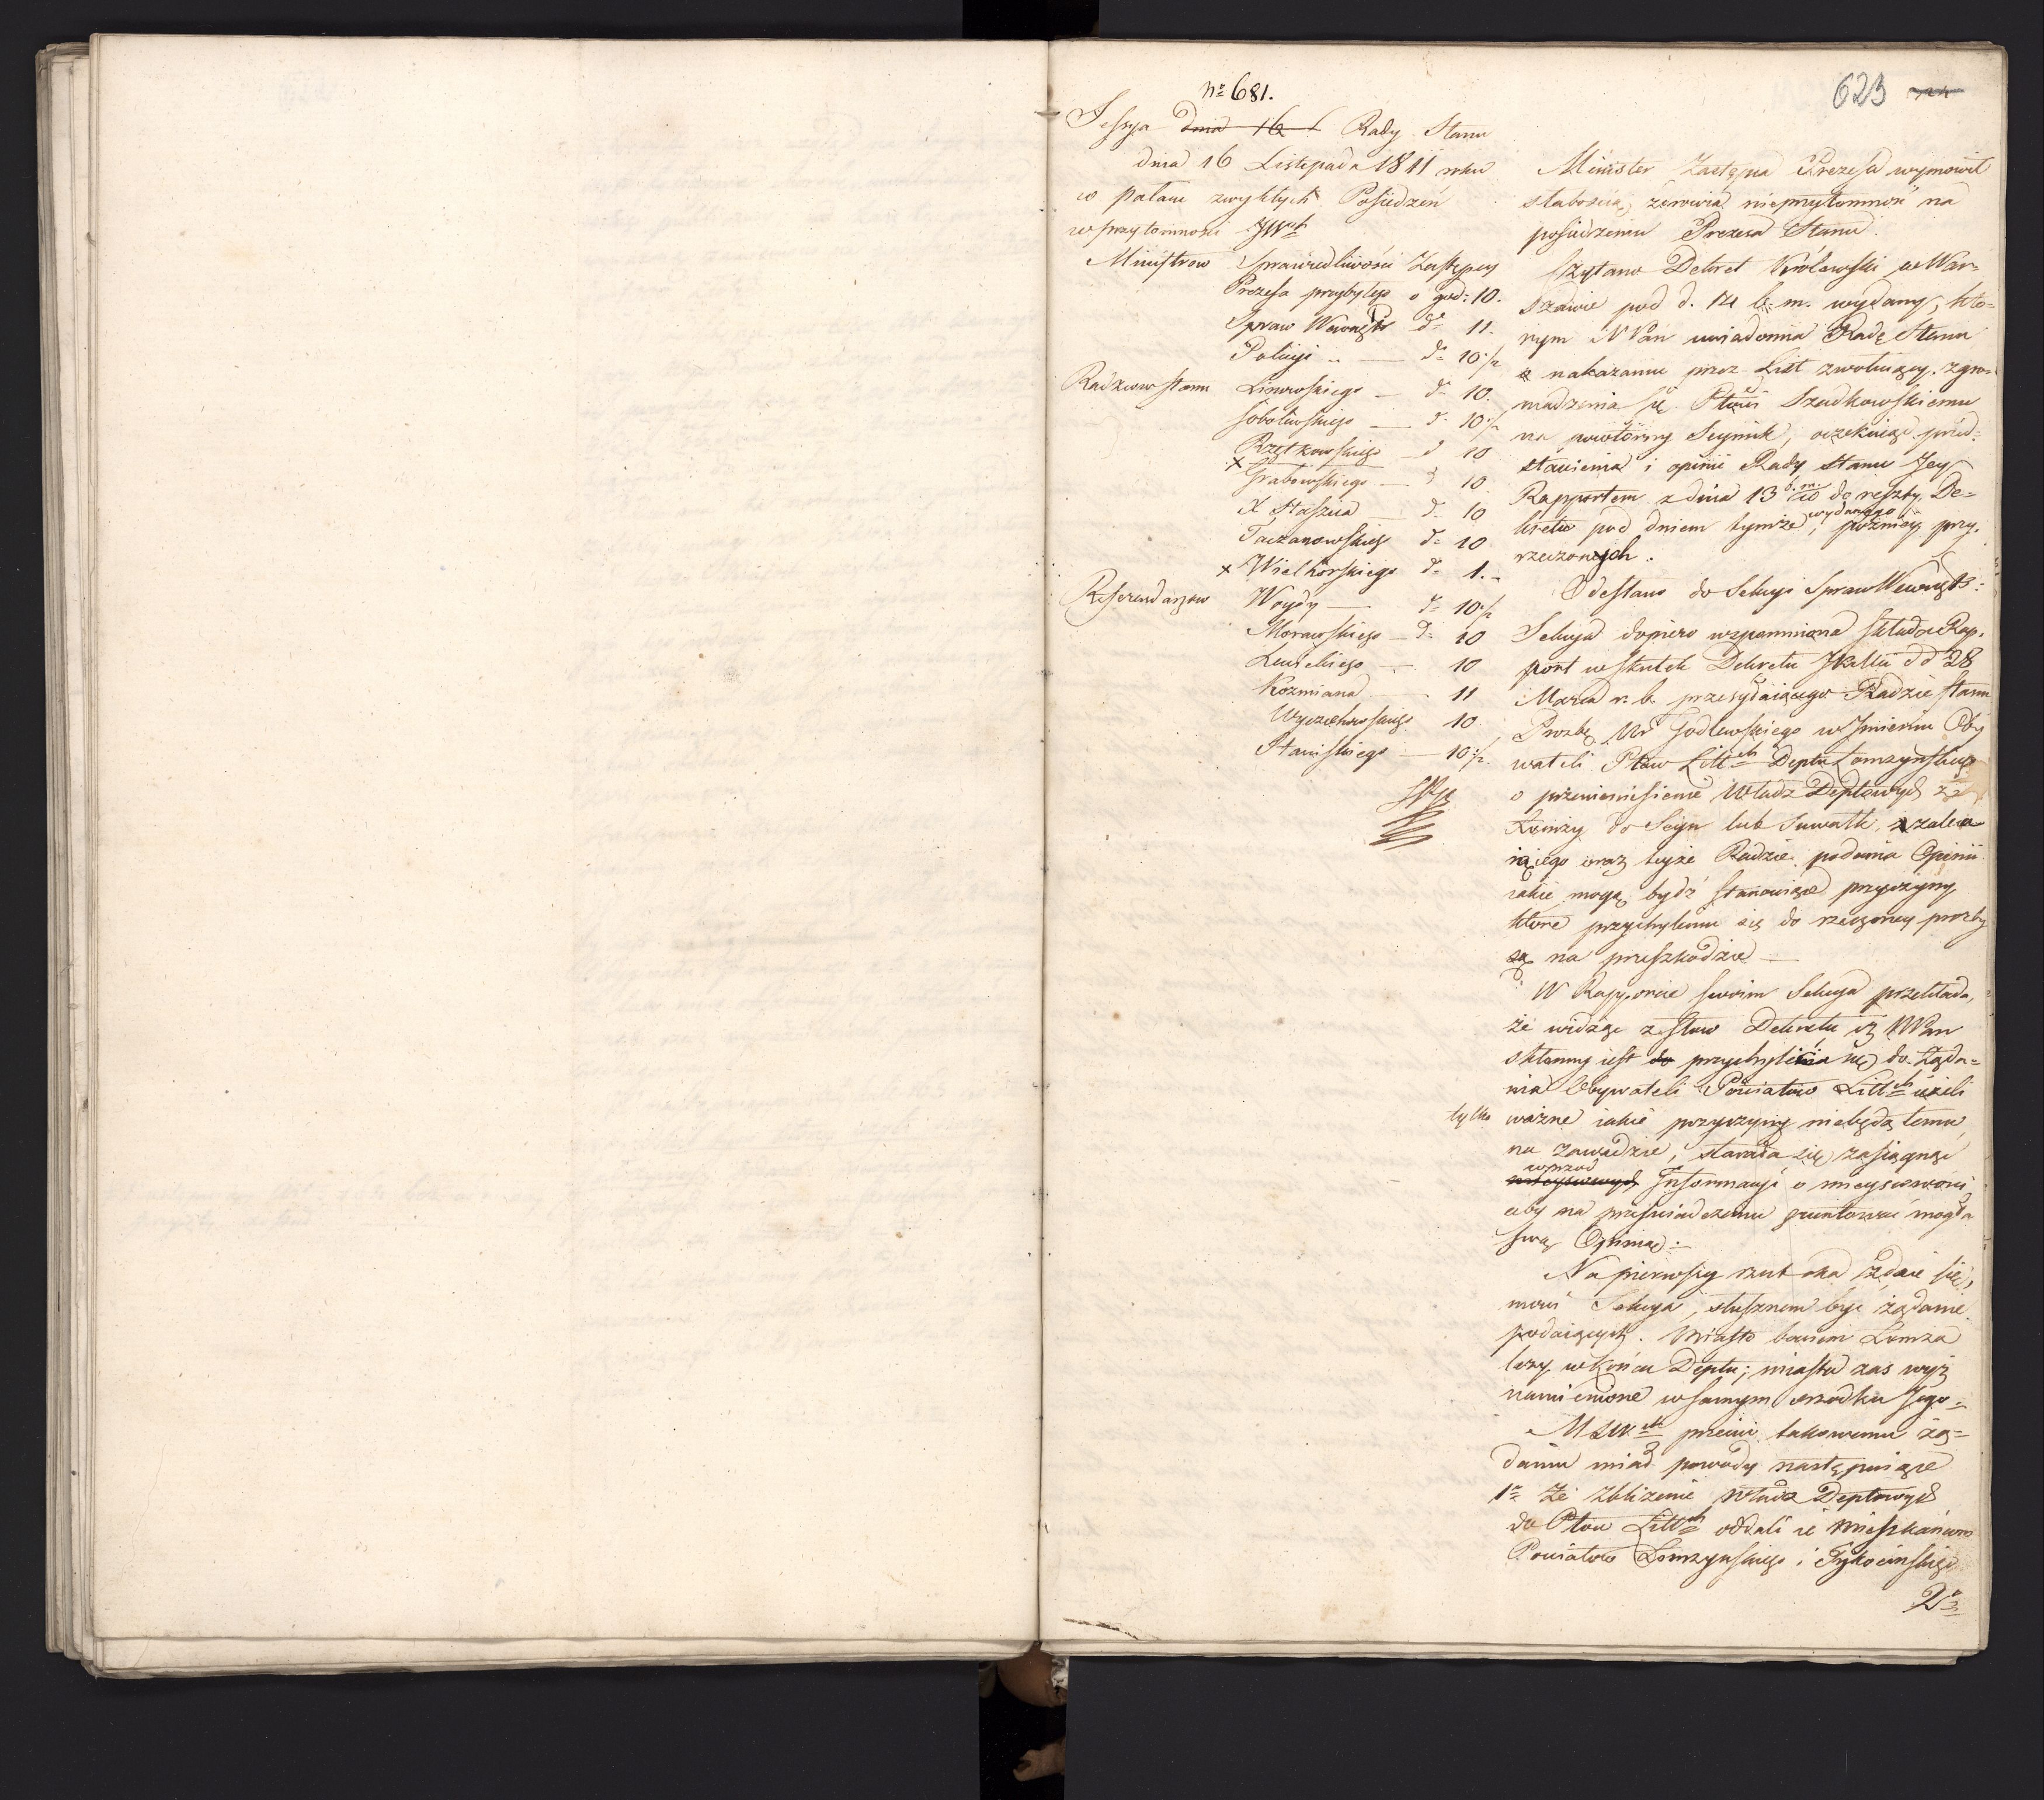 nr 681.
623
Sessya dnia 16 Rady Stanu
dnia 16 Listopada 1811 roku
w pałacu zwykłych Posiedzeń
w przytomności JWch
Ministrow Sprawiedliwości Zastępcy
Prezesa przybyłego o god: 10.
Spraw Wewnętr do 11.
Policyi .. — do 10½
Radzcow stanu Linowskiego — do 10.
Sobolewskiego — do 10½
Rzętkowskiego — d 10
x Grabowskiego — d 10
X Staszica — do 10
Taczanowskiego do 10
x Wielhorskiego do 1. -
Referendarzow Woydy — do 10½
Morawskiego — do 10
Lewickiego — 10
Kozmiana — 11
Wyczechowskiego 10
Staniskiego — 10½.
Minister Zastępca Prezesa wymowił
słabością zdrowia nieprzytomność na
posiedzeniu Prezesa Stanu.
Czytano Dekret Królewski w War-
szawie pod d. 14 b. m. wydany, kto-
rym N Pan uwiadomia Radę Stanu
o nakazaniu przez List zwołuiący zgro-
madzenia się Ptowi Szadkowskiemu
na powtorny Seymik, oczekuiąc przed-
stawienia i opinii Rady stanu Jey
Rapportem z dnia 13 b. m. co do reszty De-
kretu pod dniem tymże wydanego, pozniey przy-
rzeczonych.
Odesłano do Sekcyi Spraw Wewnętr:
Sekcya dopiero wspomniona składa Rap-
port w skutek Dekretu JKMci dd 28
Marca r. b. przesyłaiącego Radzie stanu
Prozbę Ur Godlewskiego w Jmieniu Oby
wateli Ptow Littch Deptu Łomzynskiego
o przeniesienie Władz Deptowych z
Łomży do Seyn lub Suwałk, zaleca
iącego oraz teyże Radzie podania Opinii
iakie mogą bydź stanowiące przyczyny,
ktore przychyleniu się do rzeczoney prozby
są na przeszkodzie —
W Rapporcie swoim Sekcya przekłada,
że widząc z słow Dekretu, iż NPan
skłonny iest do przychylenia się do żąda-
nia Obywateli Powiatow Littch ieżeli
tylko ważne iakie przyczyny niebędą temu
na zawadzie, starała się zasiągnąć
wprzod
mieyscowych Informacyi o mieyscowości
aby na przeświadczeniu gruntować mogła
swą Opinią:-
Na pierwszy rzut oka zdaie się,
mowi Sekcya, słusznem być żądanie
podaiących. Miasto bowiem Łomża
leży w końcu Deptu; miasta zas wyż
namienione w samym srodku Jego -
MSWch przeciw takowemu żą-
daniu miał powody następuiące
1o Że zbliżenie władz Deptowych
do Ptow Littch oddali ie mieszkańcom
Powiatow Łomzynskiego i Tykocinskiego
2o